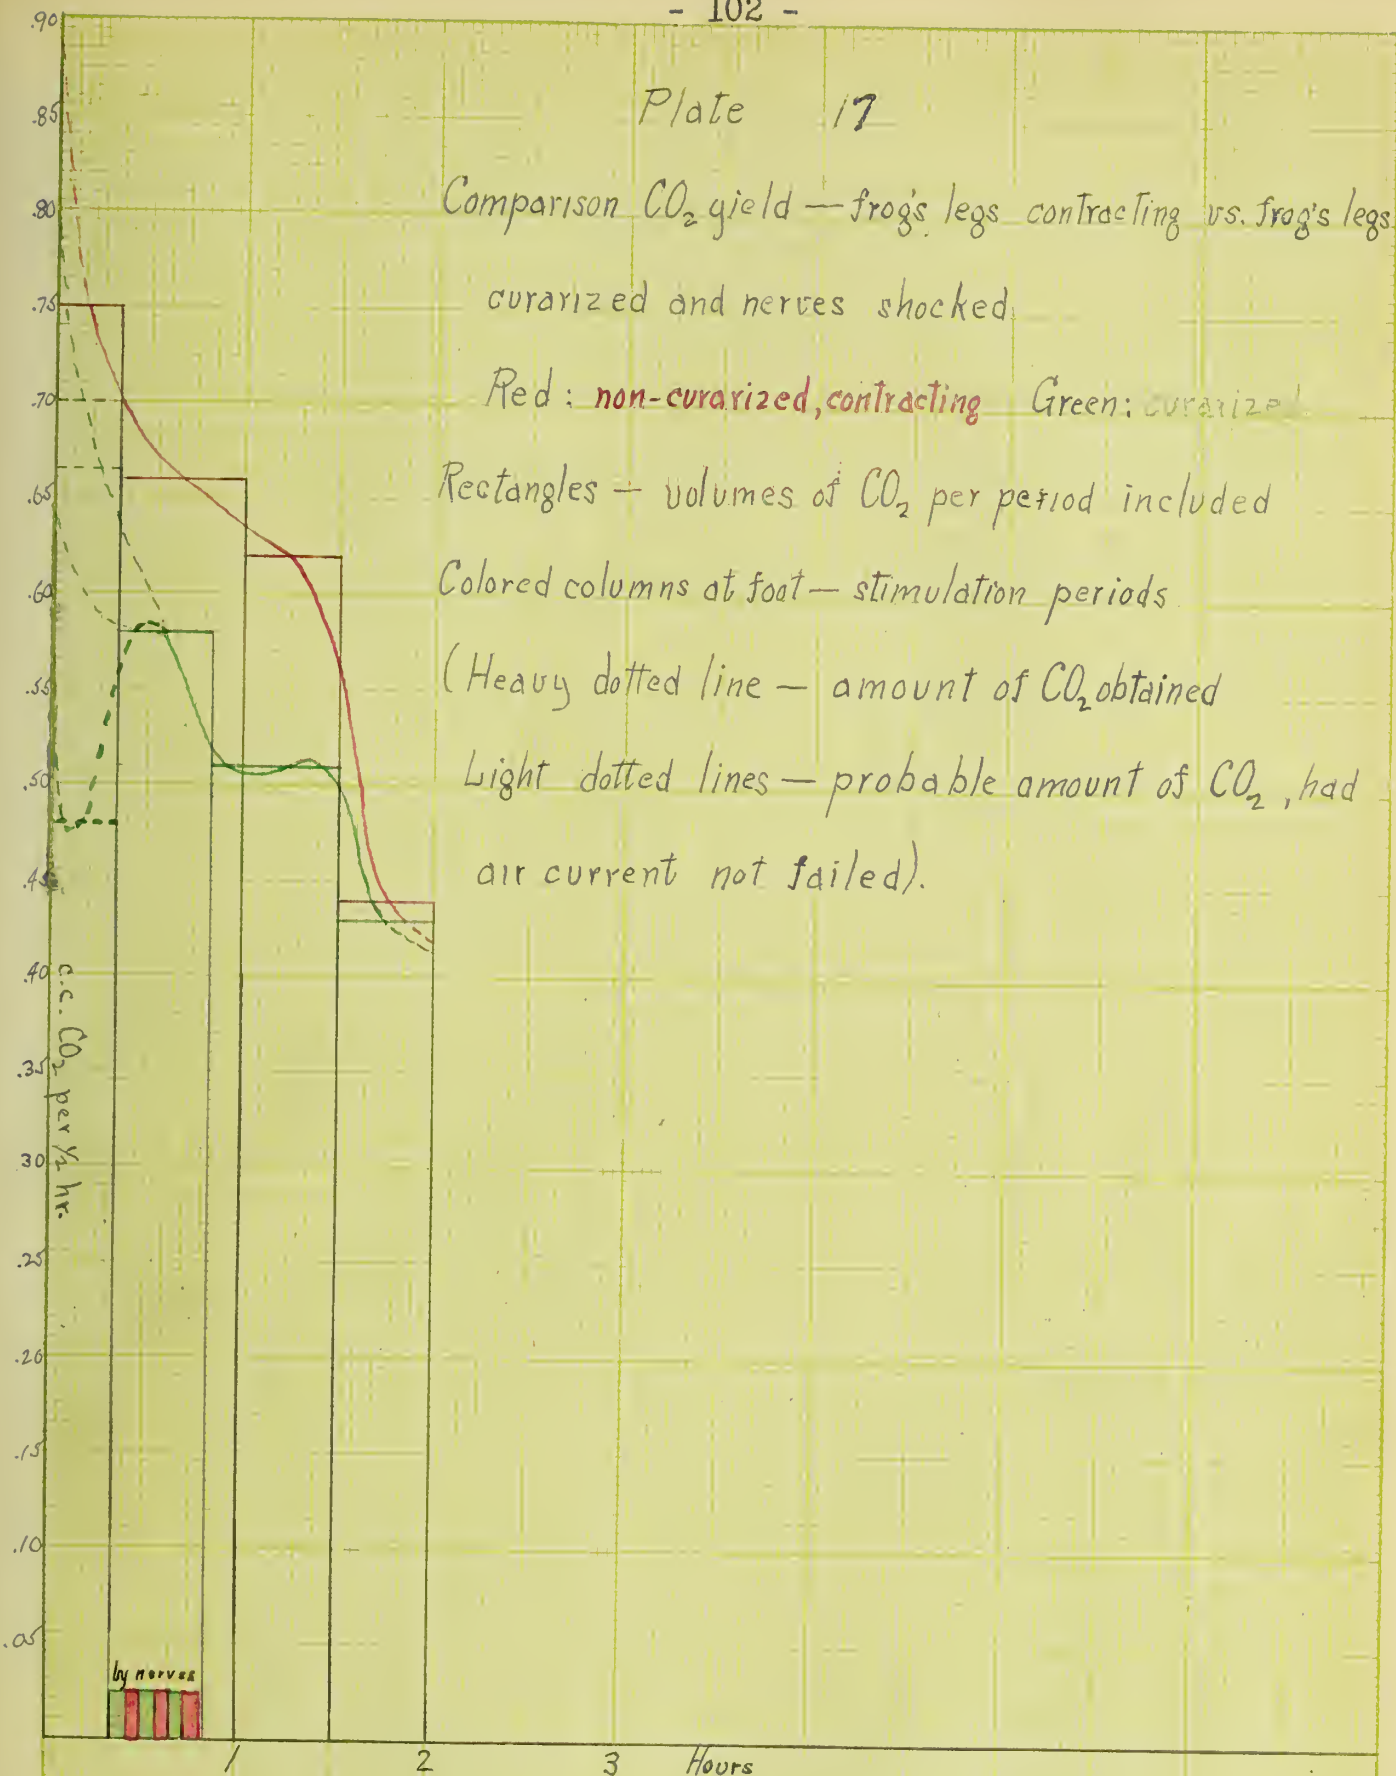 - 102 -
Plate 17
Comparison CO₂ yield — frog's legs contracting vs. frog's legs
curarized and nerves shocked.
Red: non-curarized, contracting Green: curarized
Rectangles — volumes of CO₂ per period included
Colored columns at foot — stimulation periods
(Heavy dotted line — amount of CO₂ obtained
Light dotted lines — probable amount of CO₂, had
air current not failed).
.90
.85
.80
.75
.70
.65
.60
.55
.50
.45
.40
.35
30
.25
.20
.15
.10
.05
c.c. CO₂ per ½ hr.
by nerves
1 2 3 Hours